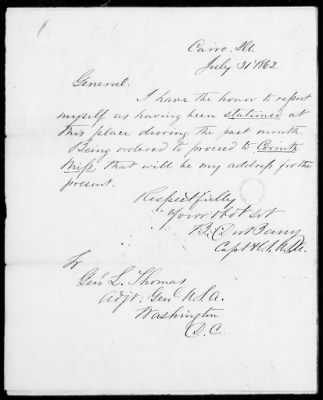 Cairo, Ills.
July 31st 1862.
General.
I have the honor to report
myself as having been stationed at
this place during the past month.
Being ordered to proceed to Corinth
Miss, that will be my address for the
present.
Respectfully
Your obdt svt
Capt
To
Genl L. Thomas
Adjt. Genl U.S.A.
Washington
D.C.